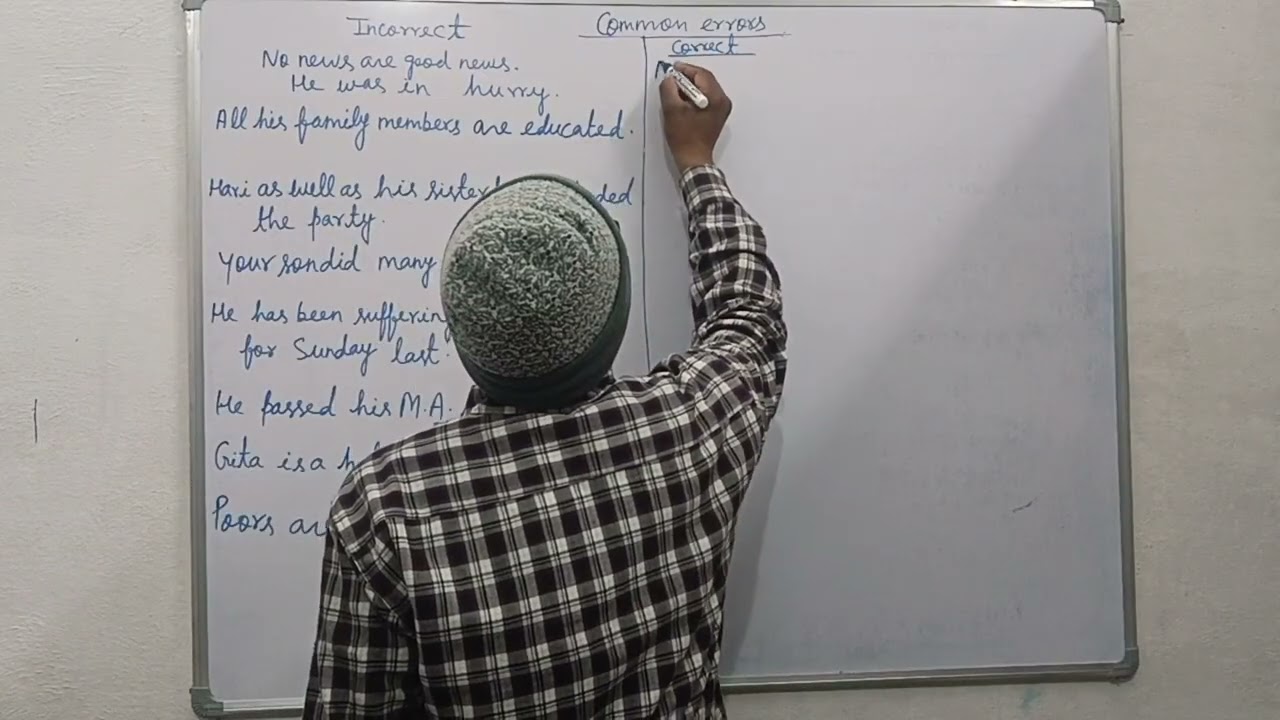 Common errors
Incorrect
Correct
No news are good news.
He was in hurry.
All his family members are educated.
Hari as well as his sister
the party.
Your son did many
He has been suffering
for Sunday last.
He passed his M.A.
Gita is a
Poors
N